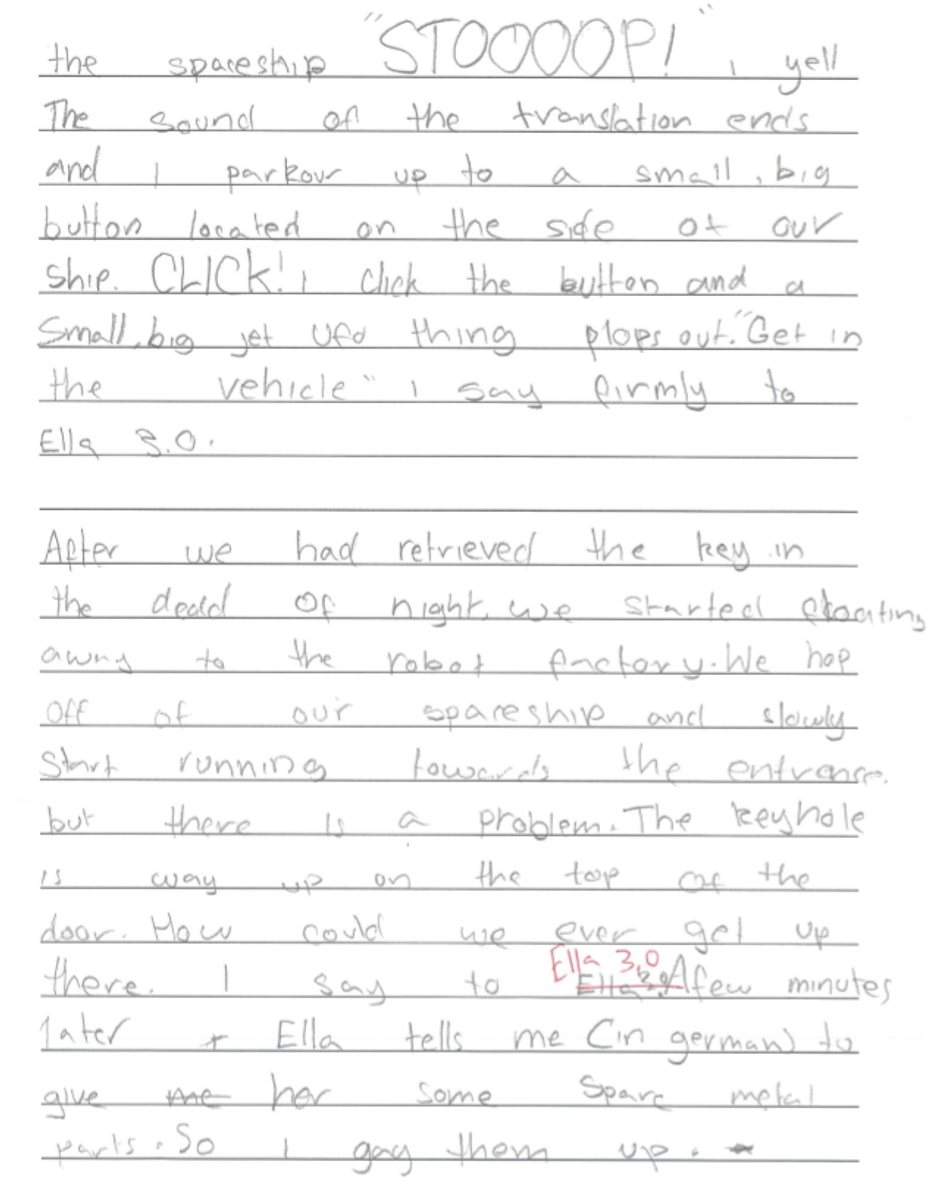 the spaceship "STOOOOP!" I yell
The sound of the translation ends
and I parkour up to a small, big
button located on the side of our
ship. CLICK! I click the button and a
Small, big jet UFO thing plops out. "Get in
the vehicle" I say firmly to
Ella 3.0.
After we had retrieved the key in
the dead of night, we started floating
away to the robot factory. We hop
off of our spaceship and slowly
start running towards the entranse.
but there is a problem. The keyhole
is way up on the top of the
door. How could we ever get up
there. I say to Ella 3.0 A few minutes
later Ella tells me (in german) to
give me her some spare metal
parts. So I them up.